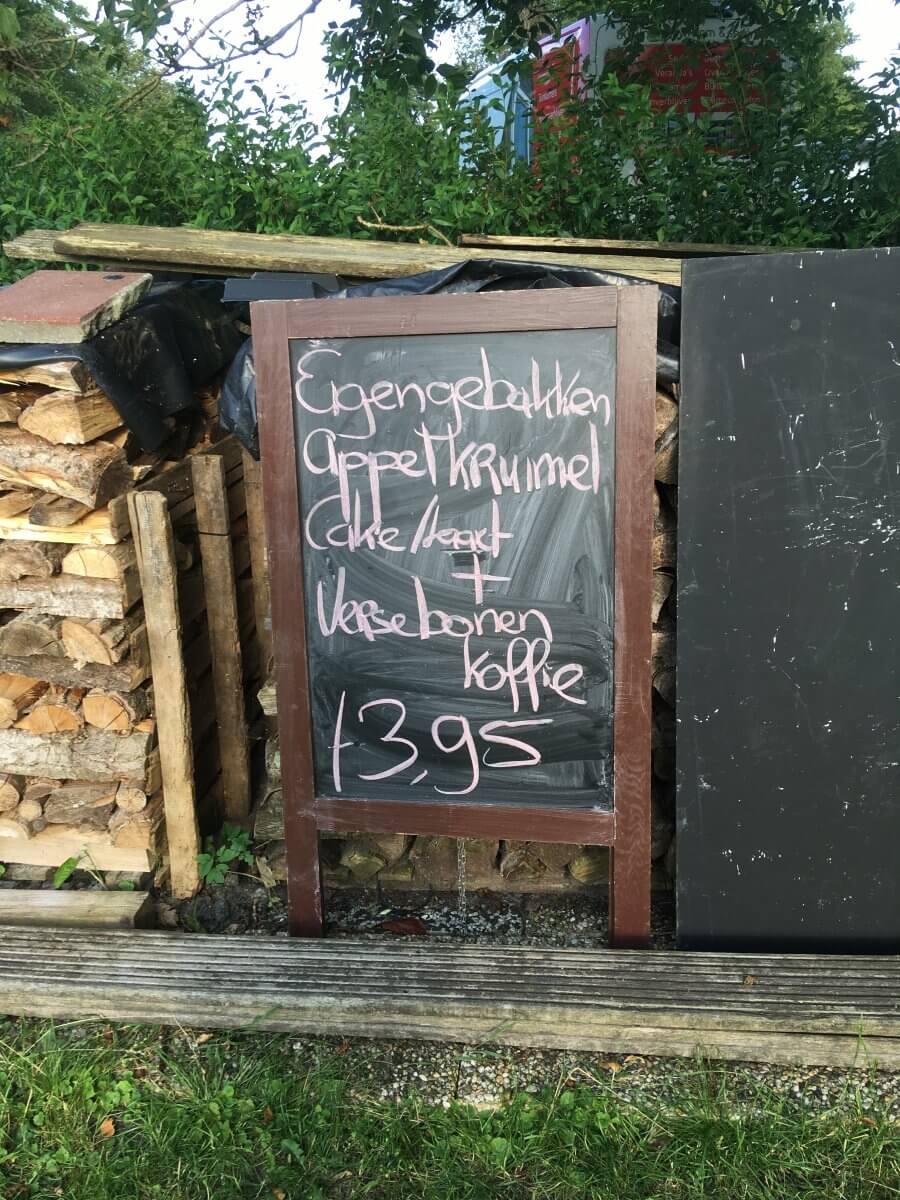 Eigengebakken
AppelKRuimel
Cake/taart
+
Verse bonen
koffie
f3,95
Veranda's